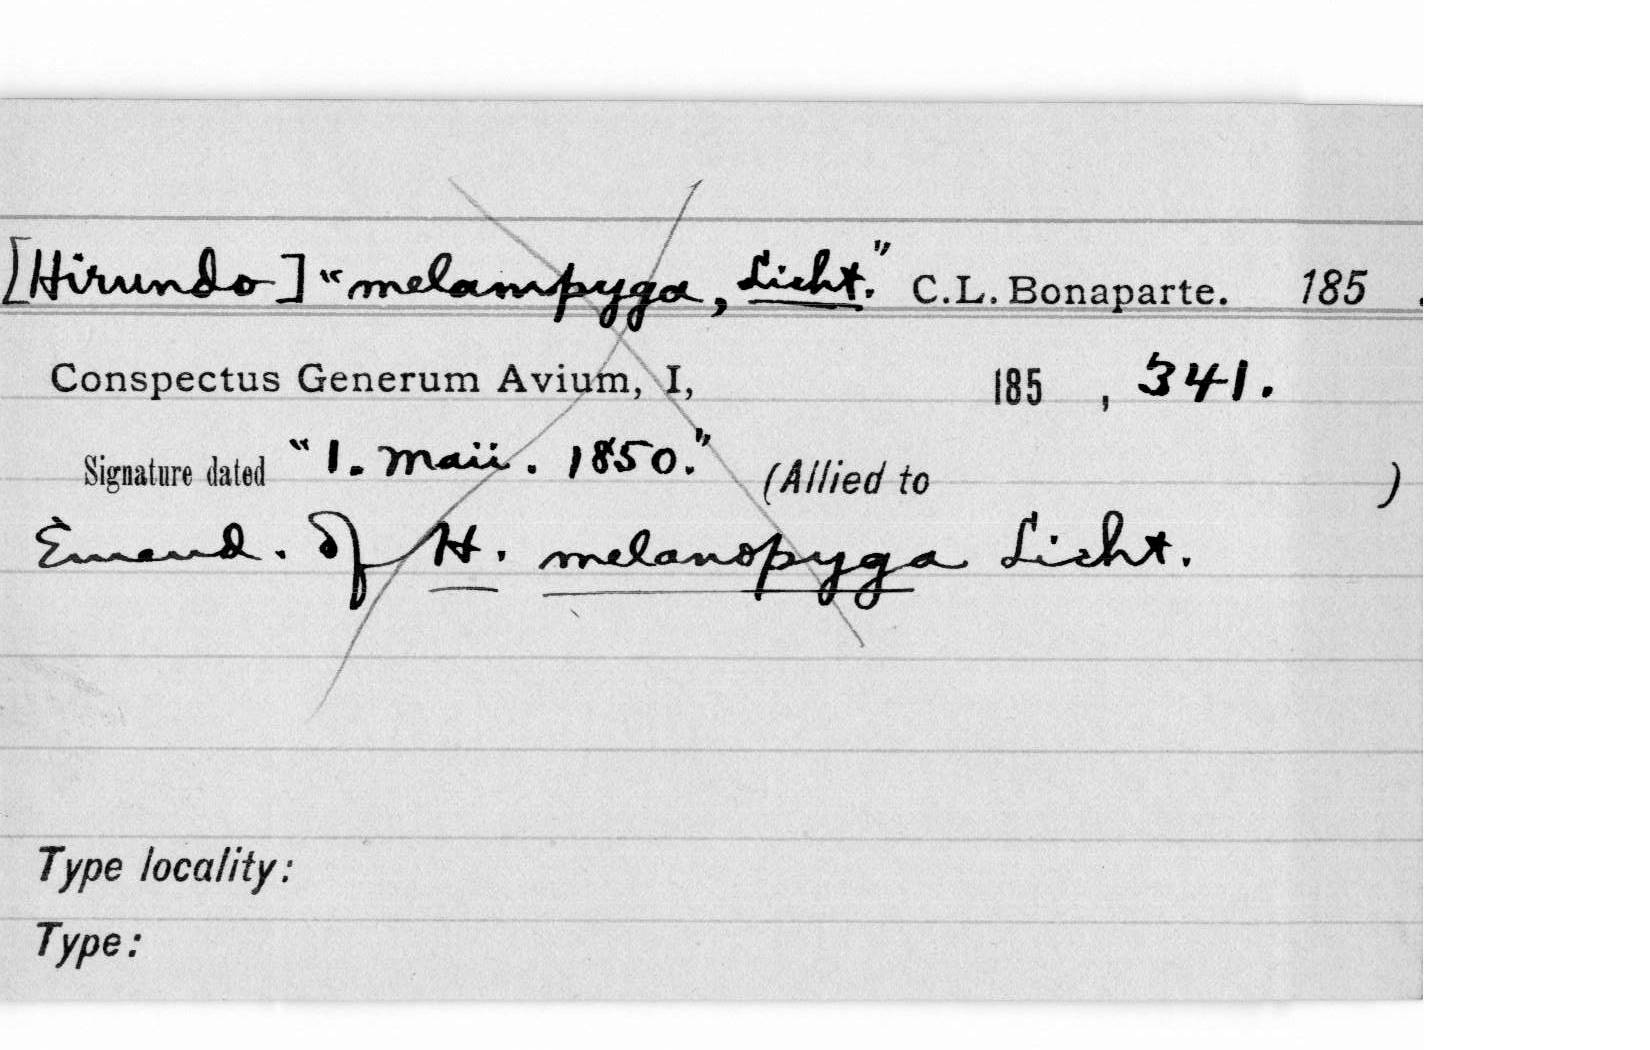 [Hirundo] "melampyga, Licht." C.L. Bonaparte. 185 .
Conspectus Generum Avium, I, 185 , 341.
Signature dated "1. Maii. 1850." (Allied to )
Emend. of H. melanopyga Licht.
Type locality:
Type: